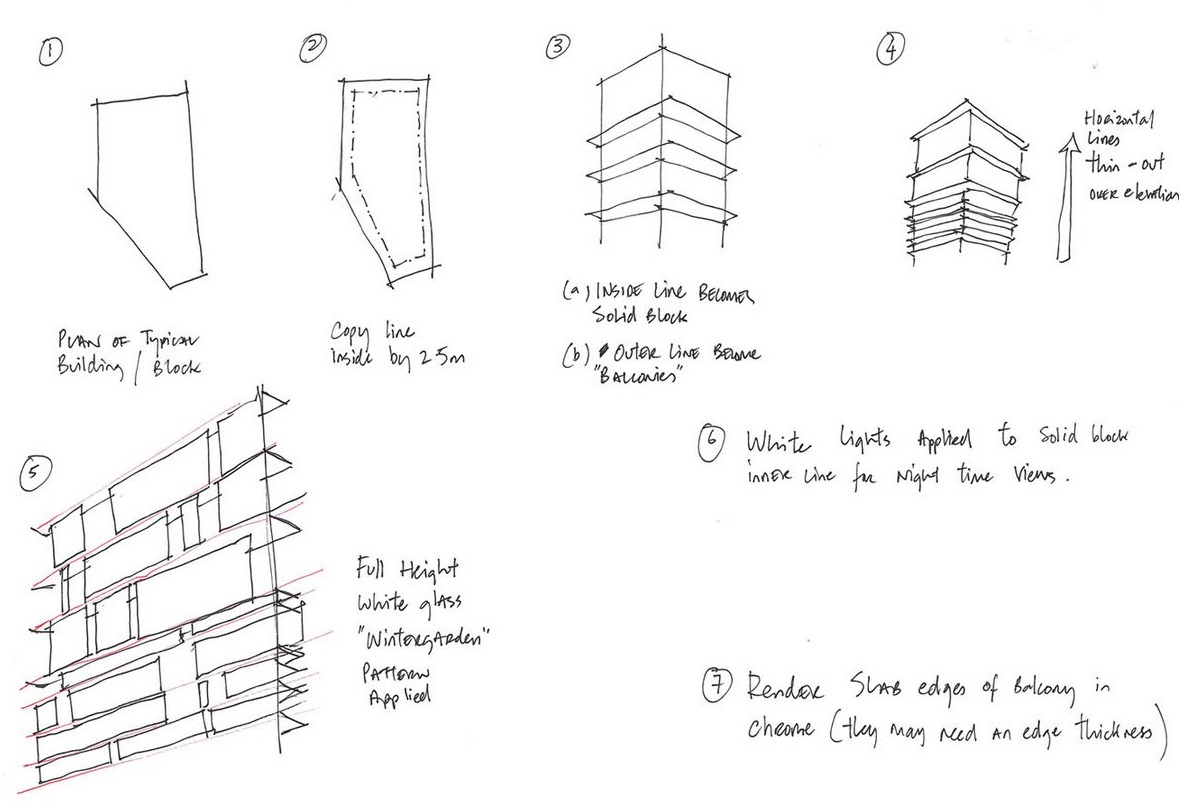 1
PLAN OF Typical
Building / Block
2
Copy line
inside by 2.5m
3
(a) INSIDE Line BECOMES
Solid BLOCK
(b) OUTER LINE BECOME
"BALCONIES"
4
Horizontal
Lines
thin-out
OVER elevation
5
Full Height
White glass
"WINTERGARDEN"
PATTERN
Applied
6
White Lights Applied to Solid block
inner Line for Night time Views.
7
Render SLAB edges of Balcony in
chrome (they may need An edge thickness)